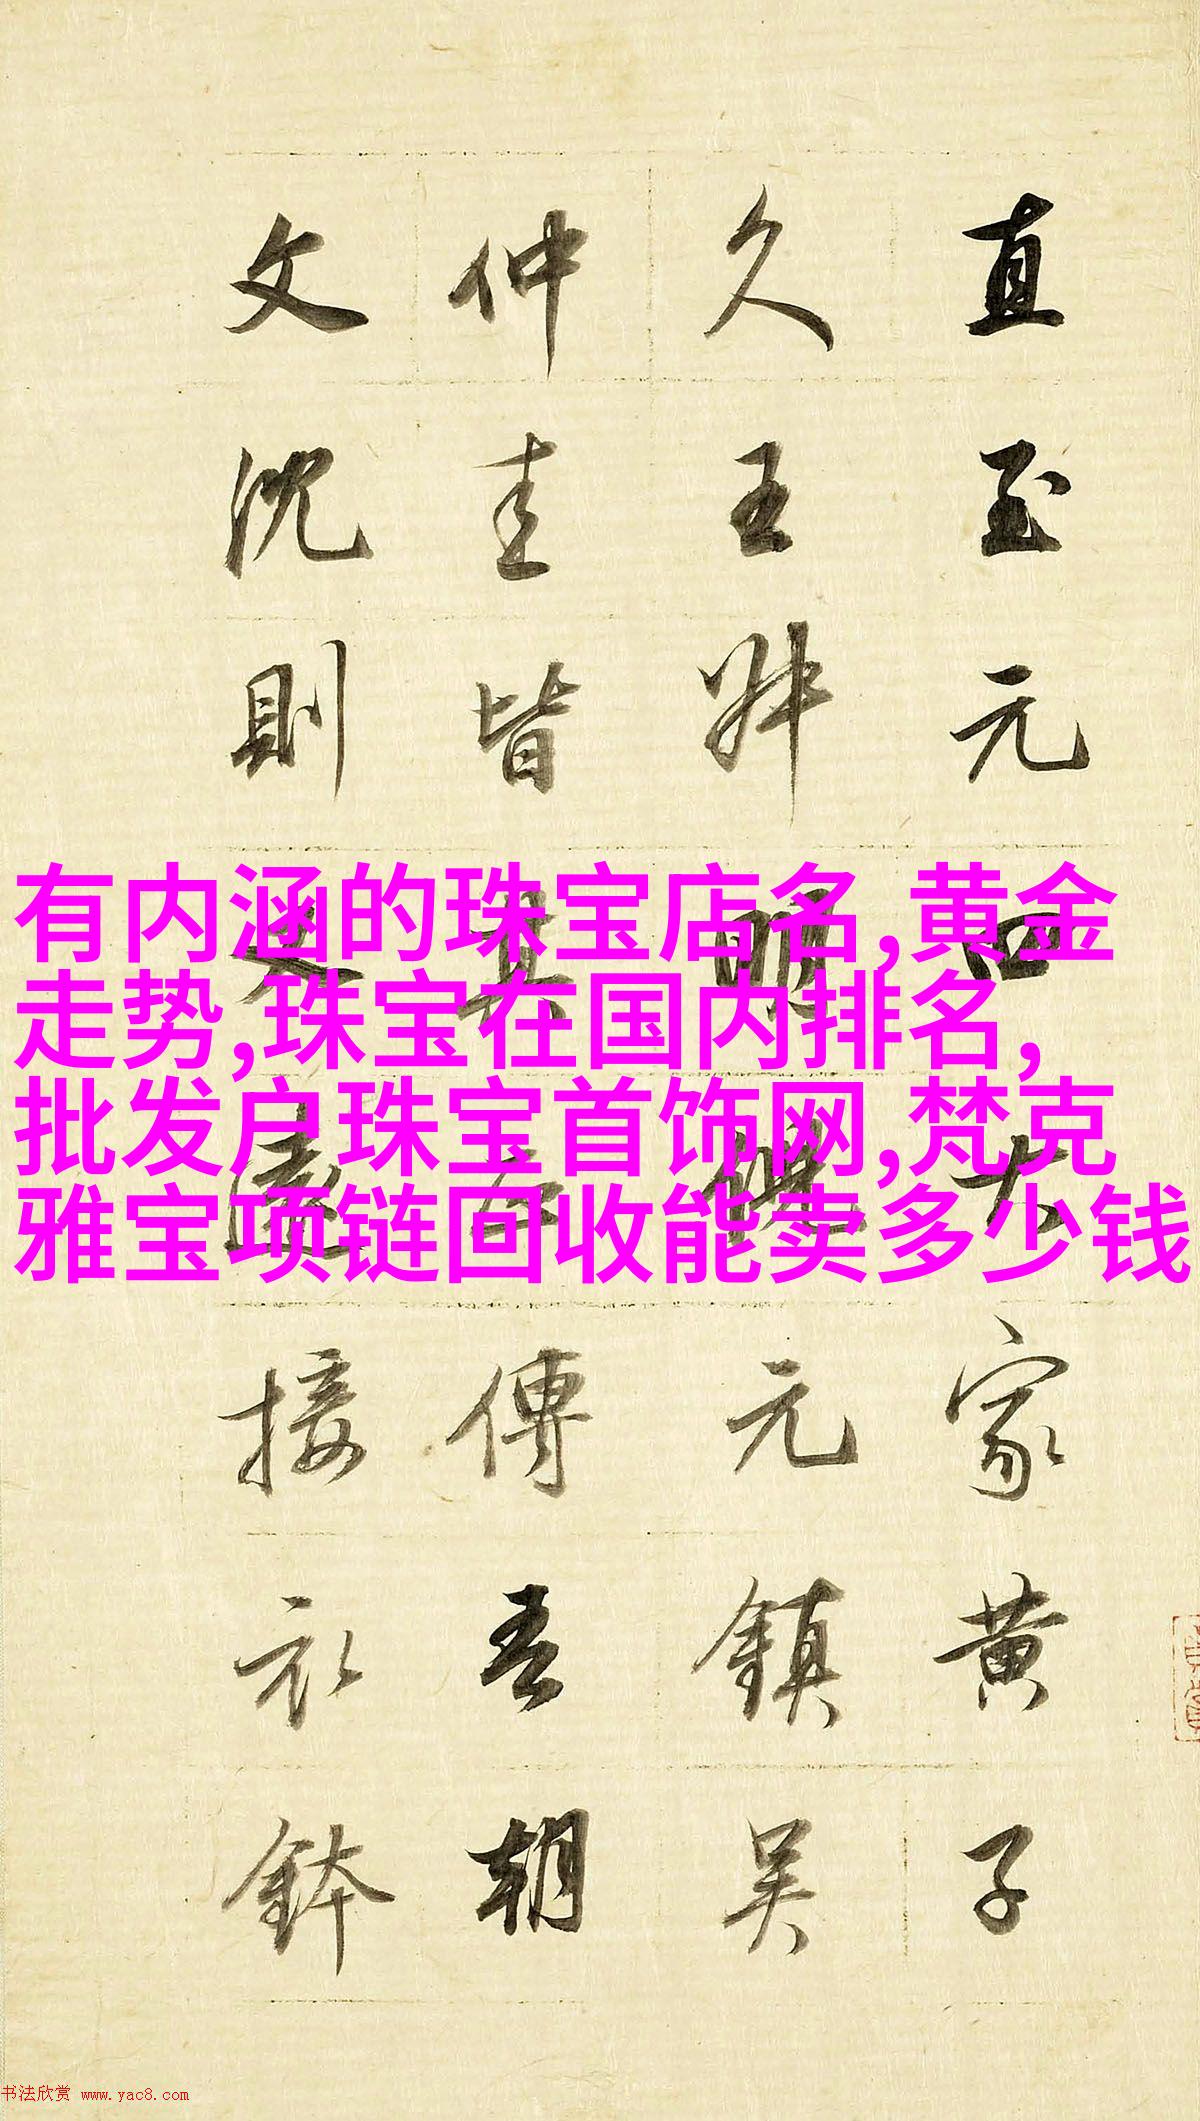 直至元四大家黄子
久王叔明倪元鎮吴
仲圭皆其正傳吾朝
文沈則又遠接衣鉢
有内涵的珠宝店名,黄金
走势,珠宝在国内排名,
批发户珠宝首饰网,梵克
雅宝项链回收能卖多少钱
书法欣赏 www.yac8.com